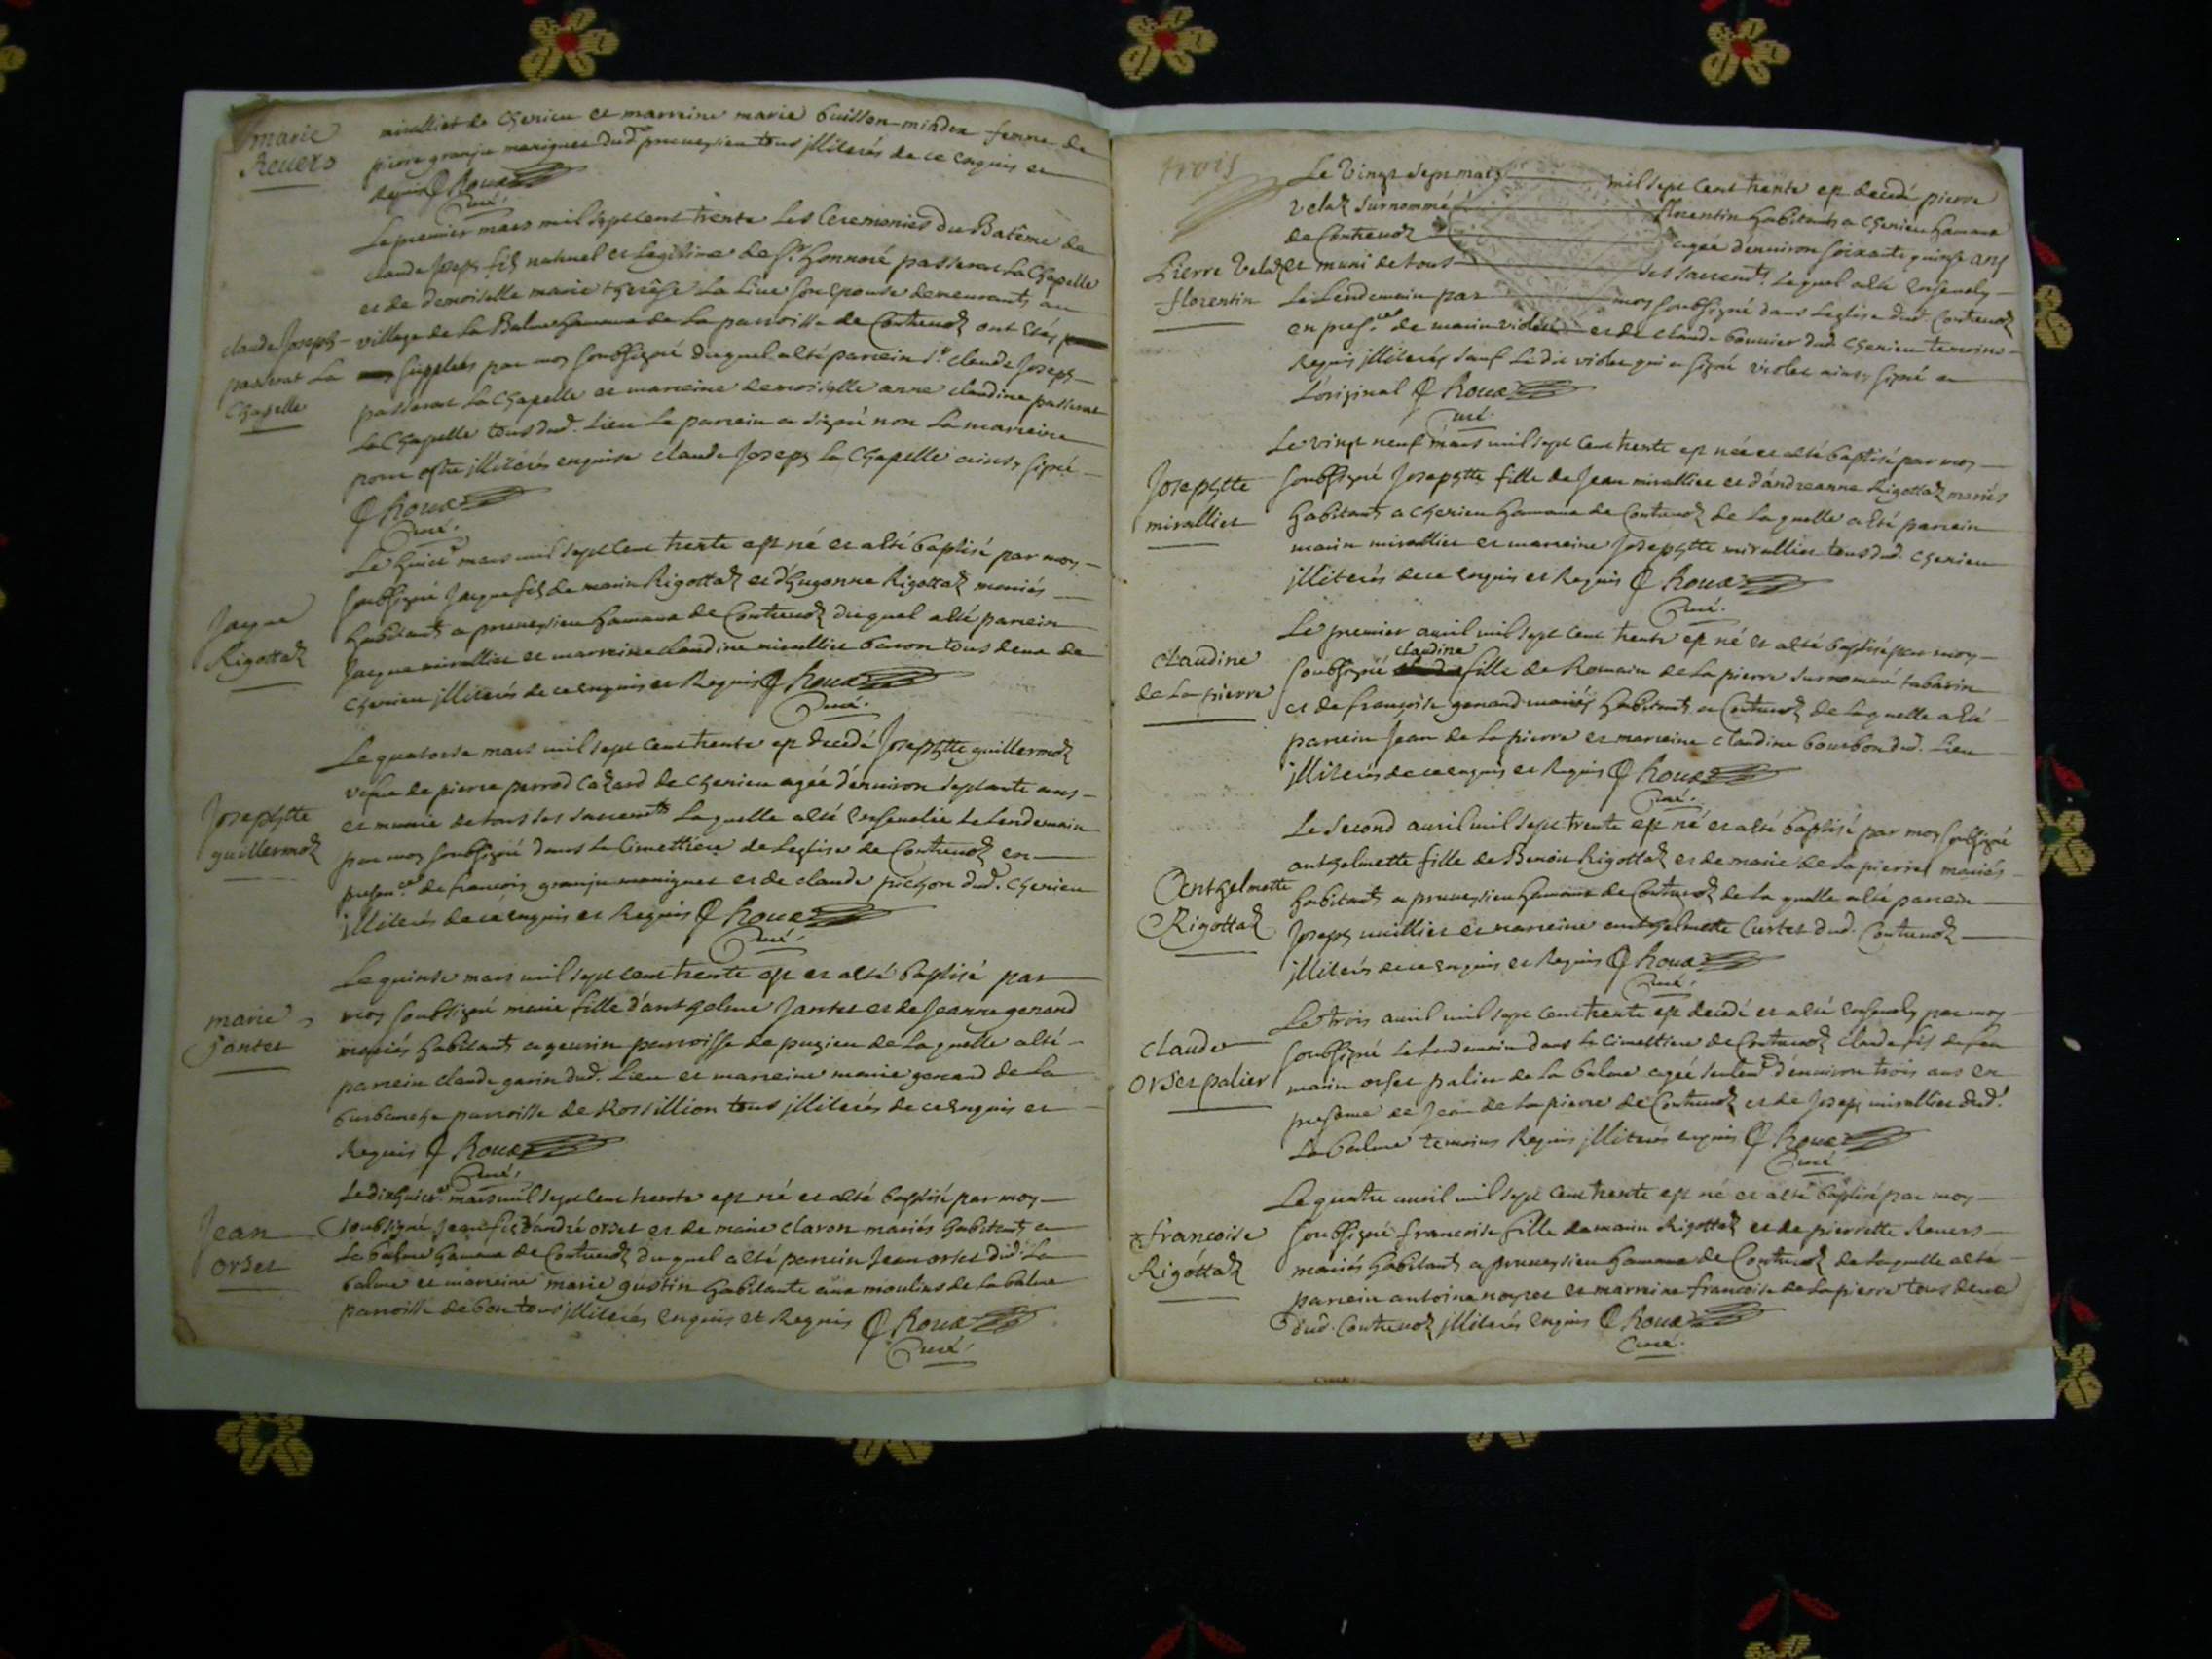 marie
Revers
miralliet de Cherieu et marreine marie buisson-mindex femme de
pierre granju marignet dud. pruneysieu tous jlliterés de ce enquis et
requis Roux
Curé.
Le premier mars mil sept cent trente Les Ceremonies du Batême de
claude Joseph fils naturel et Legitime de Sr. honnoré passerat La Chapelle
et de demoiselle marie therêse La Live son epouse demeurants au
claude Joseph
passerat La
Chapelle
village de La Balme hameau de La parroisse de Contrevoz ont etés
supplées par moy soubsigné duquel a eté parrein Sr. claude Joseph
passerat La Chapelle et marreine demoiselle anne claudine passerat
La Chapelle tous dud. Lieu Le parrein a signé non La marreine
pour estre jlliterés enquise claude Joseph La Chapelle ainsy signé
Roux
Curé.
Jaque
Rigottaz
Le huict mars mil sept cent trente est né et a eté baptisé par moy
soubsigné Jaque fils de marin Rigottaz et d'hugonne Rigottaz mariés
habitants a pruneysieu hameau de Contrevoz duquel a eté parrein
Jaque mirallier et marreine claudine mirallier baron tous deux de
Cherieu jlliterés de ce enquis et Requis Roux
Curé.
Josephtte
guillermoz
Le quatorse mars mil sept cent trente est decedé Josephtte guillermoz
vefue de pierre perrod Cazard de Cherieu agée d'environ septante ans
et munie de tous ses sacrements Laquelle a eté Ensevelie Le Lendemain
par moy soubsigné dans Le Cimettiere de Leglise de Contrevoz en
presence de francois granju marignet et de claude pichon dud. Cherieu
jlliterés de ce enquis et Requis Roux
Curé.
marie
Jantet
Le quinse mars mil sept cent trente est et a eté baptisé par
moy soubsigné marie fille d'anthelme Jantet et de Jeanne genand
mariés habitants a geurin parroisse de pugieu de Laquelle a eté
parrein claude garin dud. Lieu et marreine marie genand de La
burbanche parroisse de Rossillion tous jlliterés de ce enquis et
Requis Roux
Curé.
Jean
orset
Le dixhuict mars mil sept cent trente est né et a eté baptisé par moy
soubsigné Jean fils d'andré orset et de marie claron mariés habitants a
La balme hameau de Contrevoz duquel a eté parrein Jean orset dud. La
balme et marreine marie gustin habitante aux moulins de la balme
parroisse de bon tous jlliterés enquis et Requis Roux
Curé.
trois
Pierre Velaz
florentin
Le Vingt Sept mars mil sept cent trente est decedé pierre
Velaz Surnommé florentin habitant a Cherieu hameau
de Contrevoz agée d'environ soixante quinse ans
et muni de tous ses sacrements. Lequel a eté ensevely
Le Lendemain par moy soubsigné dans Leglise dud. Contrevoz
en presce. de marin violet et de claude bonnier dud. Cherieu temoins
Requis jlliterés sauf Le dit violet qui a signé violet ainsy signé en
L'original Roux
Curé.
Josephtte
mirallier
Le vingt neuf mars mil sept cent trente est née et a eté baptisé par moy
soubsigné Josephtte fille de Jean mirallier et d'andreanne Rigottaz mariés
habitants a Cherieu hameau de Contrevoz de Laquelle a eté parrein
marin mirallier et marreine Josephtte mirallier tous dud. Cherieu
jlliterés de ce enquis et Requis Roux
Curé.
claudine
de La pierre
Le premier auril mil sept cent trente est né et a eté baptisé par moy
soubsigné claudine fille de Romain de La pierre surnommé tabarin
et de françoise genand mariés habitants a Contrevoz de Laquelle a eté
parrein Jean de La pierre et marreine claudine bourbon dud. Lieu
jlliterés de ce enquis et Requis Roux
Curé.
Anthelmette
Rigottaz
Le Second auril mil sept trente est né et a eté baptisé par moy soubsigné
anthelmette fille de Benoit Rigottaz et de marie de La pierre mariés
habitants a pruneysieu hameau de Contrevoz de La quelle a eté parrein
Joseph millier et marreine anthelmette Curtet dud. Contrevoz
jlliterés de ce enquis et Requis Roux
Curé.
claude
orset palier
Le trois auril mil sept cent trente est decedé et a eté ensevely par moy
soubsigné Le Lendemain dans Le Cimettiere de Contrevoz claude fils de feu
marin orset palier de La balme agée seulemt. d'environ trois ans en
presence de Jean de La pierre de Contrevoz et de Joseph mirallier dud.
La balme temoins Requis jlliterés enquis Roux
Curé
francoise
Rigottaz
Le quatre auril mil sept cent trente est né et a eté baptisé par moy
soubsigné francoise fille de marin Rigottaz et de pierrette Revers
mariés habitants a pruneysieu hameau de Contrevoz de Laquelle a eté
parrein antoine noyret et marreine francoise de La pierre tous deux
dud. Contrevoz jlliterés enquis Roux
Curé.